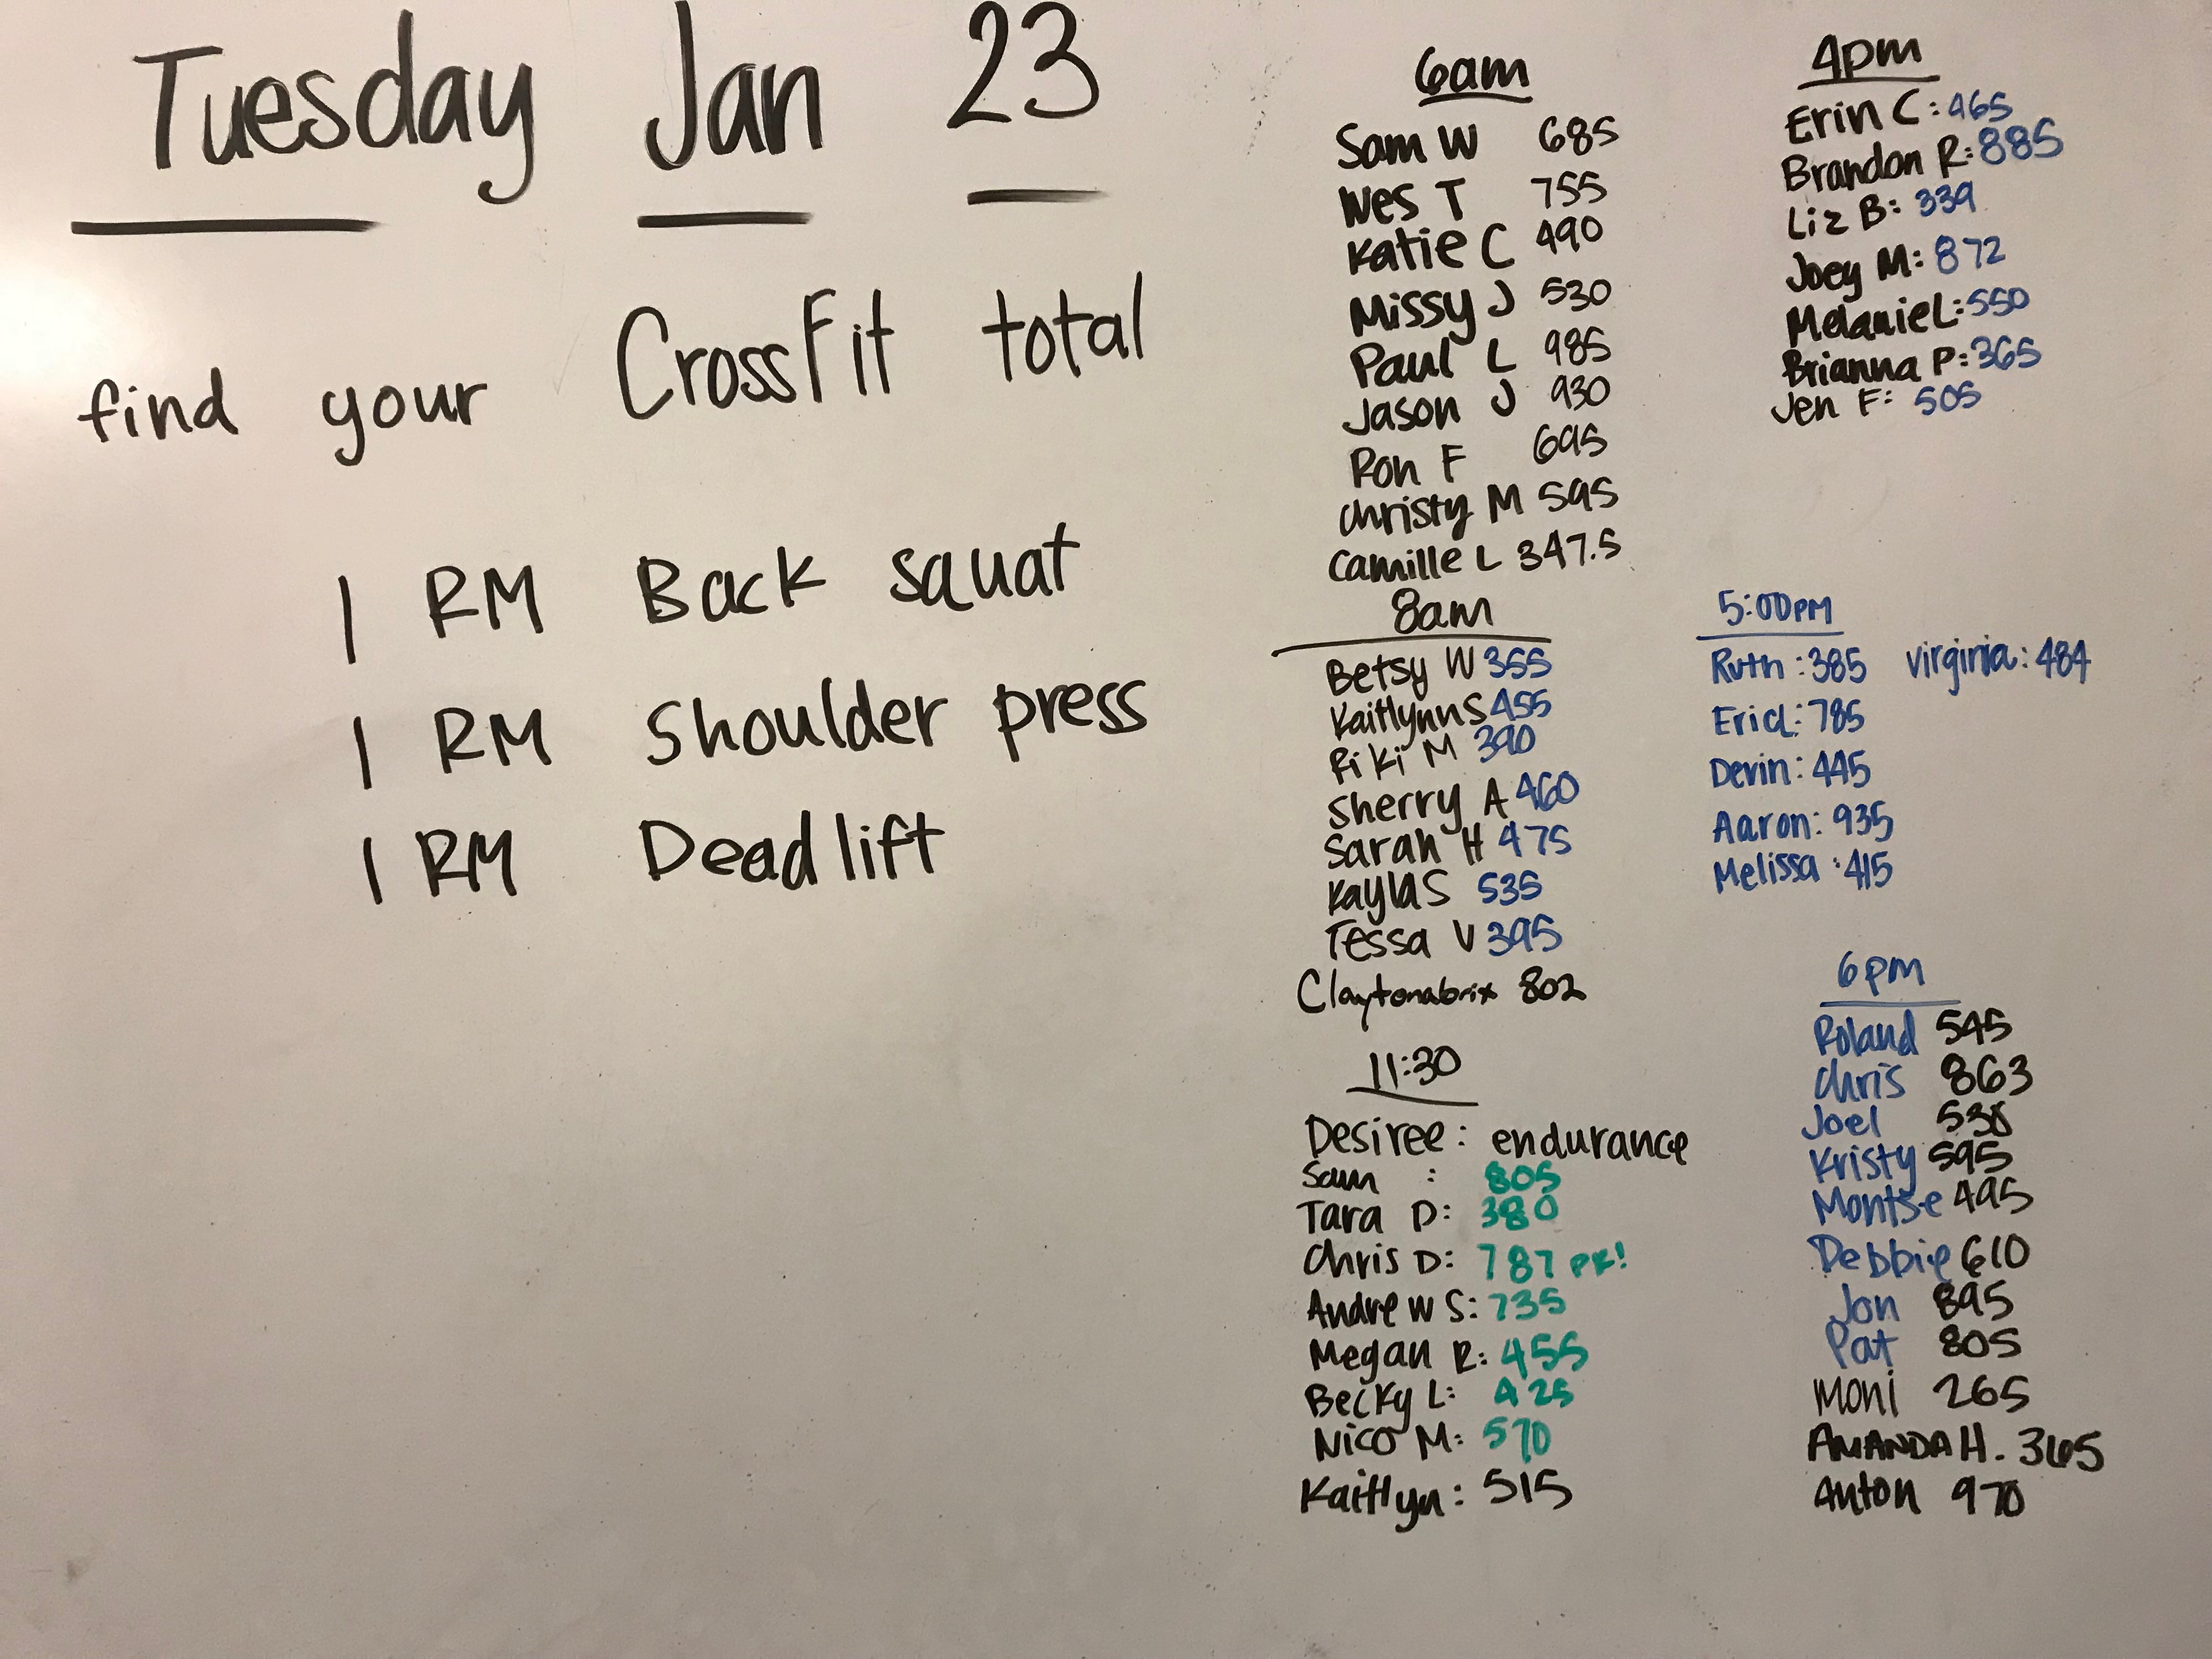 Tuesday Jan 23
find your CrossFit total
1 RM Back squat
1 RM Shoulder press
1 RM Deadlift
6am
Sam W 685
Wes T 755
Katie C 490
Missy J 530
Paul L 985
Jason J 930
Ron F 695
Christy M 595
Camille L 347.5
8am
Betsy W 355
Kaitlynn S 455
Riki M 390
Sherry A 460
Sarah H 475
Kayla S 535
Tessa V 395
Claytonabrix 802
11:30
Desiree: endurance
Sam : 805
Tara D: 380
Chris D: 787 PR!
Andrew S: 735
Megan R: 455
Becky L: 425
Nico M: 570
Kaitlyn: 515
4pm
Erin C: 465
Brandon R: 885
Liz B: 339
Joey M: 872
Melanie L: 550
Brianna P: 365
Jen F: 505
5:00PM
Ruth: 385 Virginia: 484
785
Devin: 445
Aaron: 935
Melissa: 415
6pm
Roland 545
Chris 863
Joel
Kristy 595
Montse 495
Debbie 610
Jon 895
Pat 805
Moni 265
AMANDA H. 365
Anton 970